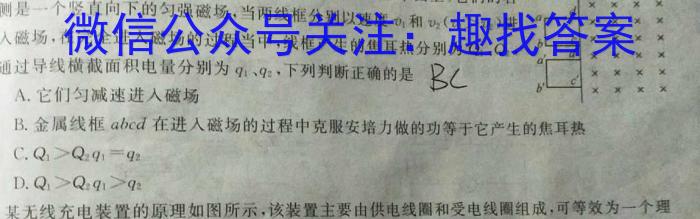 侧是一个竖直向下的匀强磁场,当两线框分别以
和
微信公众号关注:趣找答案
通过导线横截面积电量分别为 q₁、q₂,下列判断正确的是 BC
A. 它们匀减速进入磁场
B. 金属线框 abcd 在进入磁场的过程中克服安培力做的功等于它产生的焦耳热
C. Q₁>Q₂ q₁=q₂
D. Q₁>Q₂ q₁>q₂
某无线充电装置的原理如图所示,该装置主要由供电线圈和受电线圈组成,可等效为一个理
a
b'
c'